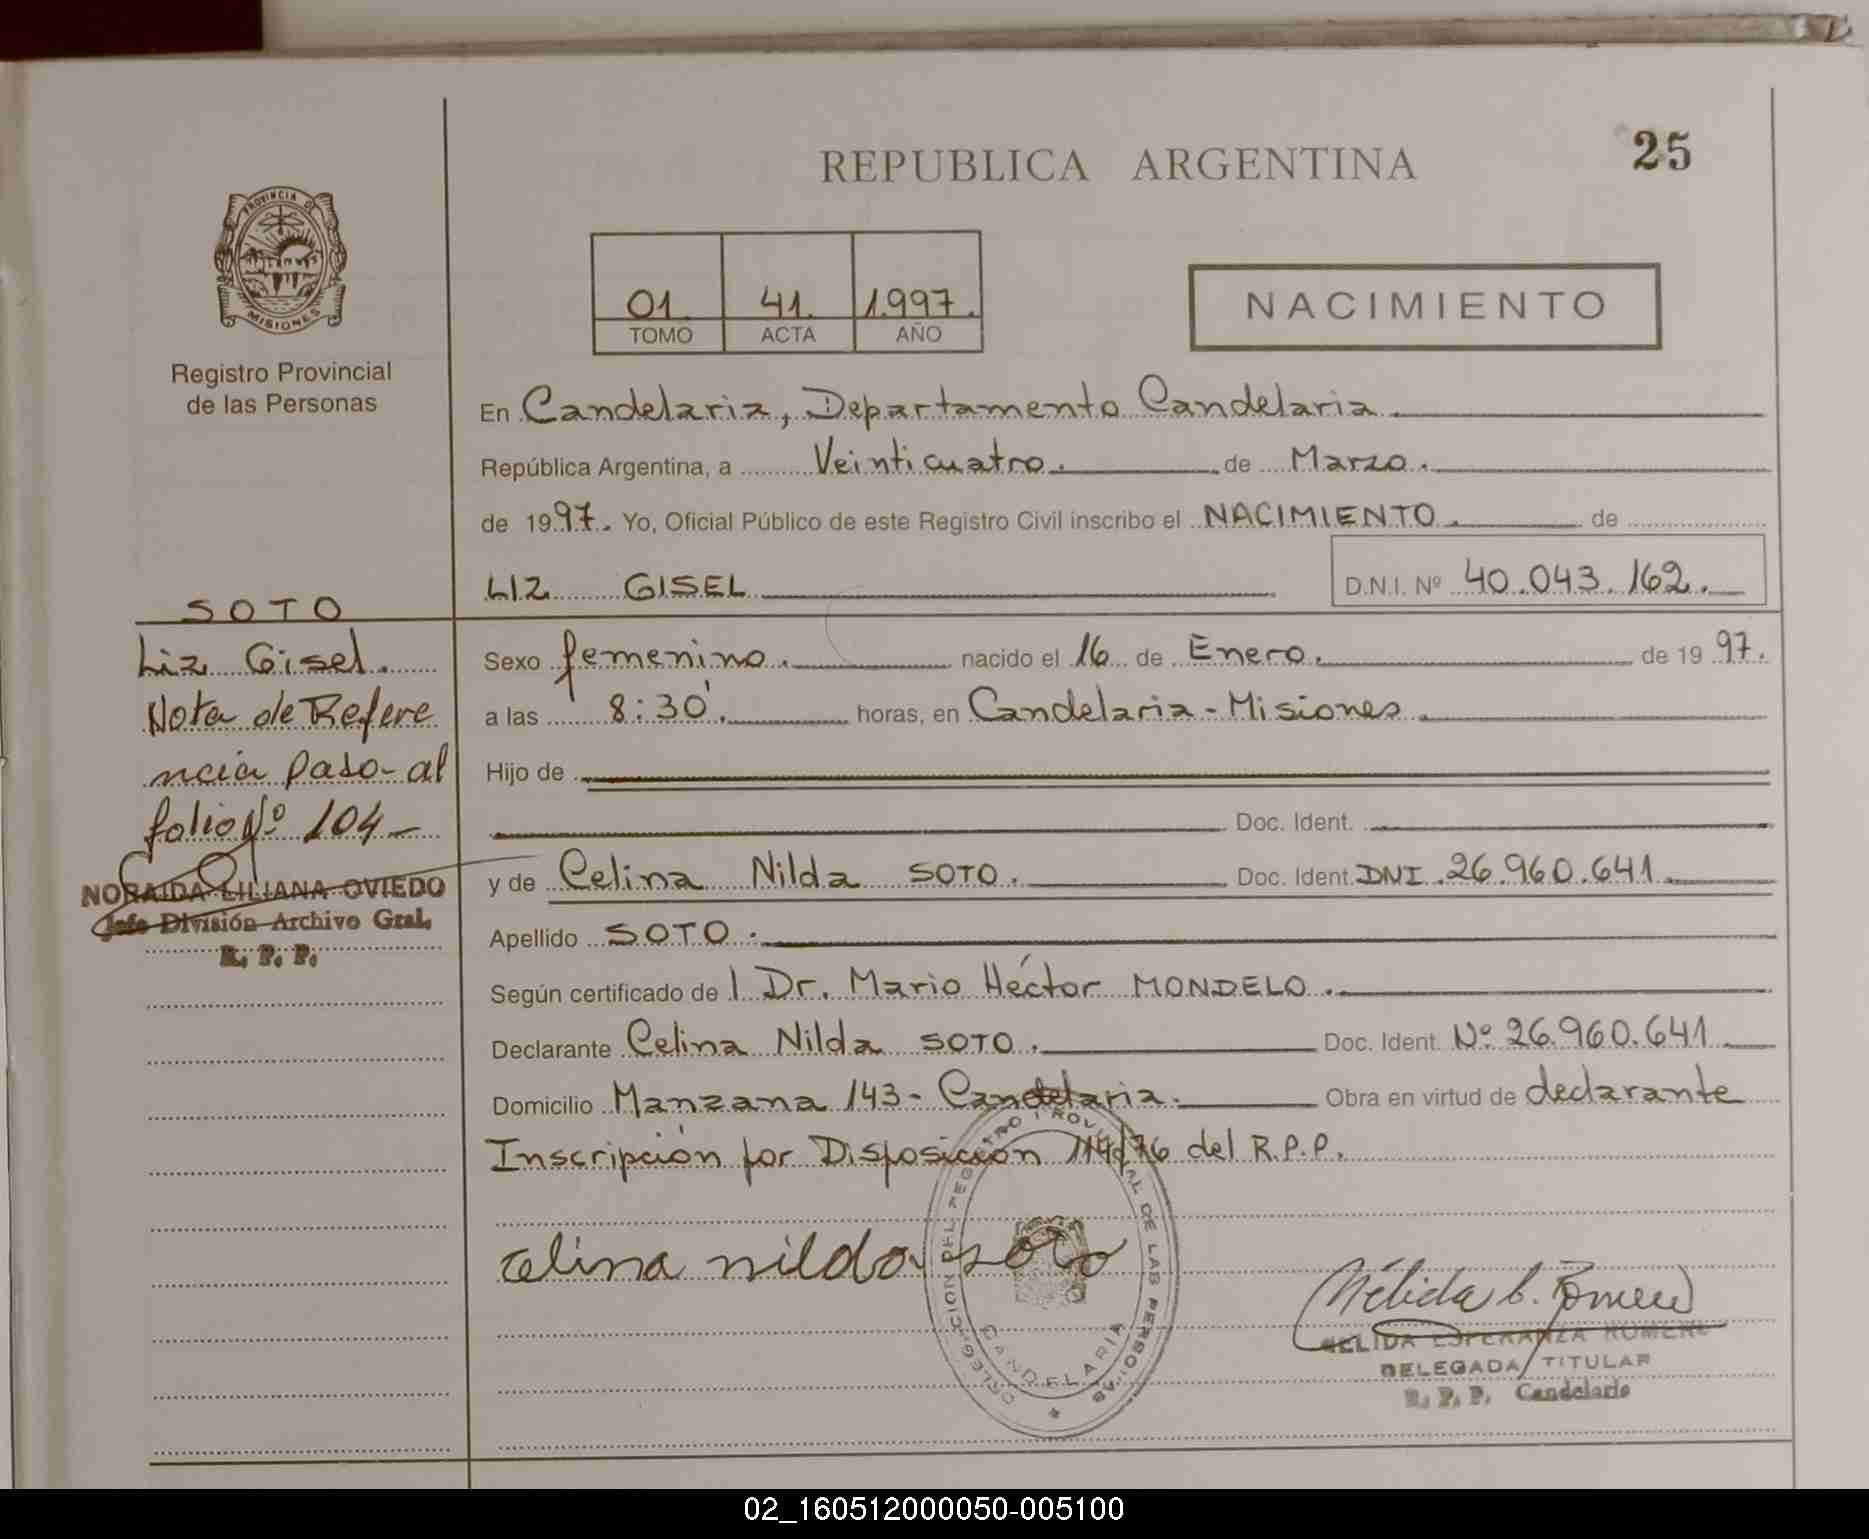 REPUBLICA ARGENTINA
25
PROVINCIA DE
MISIONES
Registro Provincial
de las Personas
01. 41. 1.997.
TOMO ACTA AÑO
NACIMIENTO
En Candelaria, Departamento Candelaria
República Argentina, a Veinticuatro. de Marzo.
de 1997. Yo, Oficial Público de este Registro Civil inscribo el NACIMIENTO. de
LIZ GISEL D.N.I. Nº 40.043.162.
SOTO
Liz Gisel.
Nota de Refere
ncia paso al
folio Nº 104
NORAIDA LILIANA OVIEDO
Jefe División Archivo Gral.
R. P. P.
Sexo femenino. nacido el 16 de Enero. de 1997.
a las 8:30'. horas, en Candelaria - Misiones
Hijo de
Doc. Ident.
y de Celina Nilda SOTO. Doc. Ident. DNI 26.960.641
Apellido SOTO.
Según certificado de l Dr. Mario Héctor MONDELO.
Declarante Celina Nilda SOTO. Doc. Ident. Nº 26.960.641
Domicilio Manzana 143 - Candelaria. Obra en virtud de declarante
Inscripción por Disposición 114/76 del R.P.P.
DELEGACION DEL REGISTRO PROVINCIAL DE LAS PERSONAS
CANDELARIA
Celina nilda soto
Nélida E. Romero
NELIDA ESPERANZA ROMERO
DELEGADA TITULAR
R. P. P. Candelaria
02_160512000050-005100